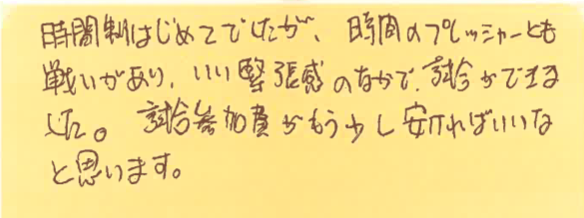 時間制はじめてでしたが、時間のプレッシャーとも
戦いがあり、いい緊張感のなかで、試合ができま
した。試合参加費がもう少し安ければいいな
と思います。